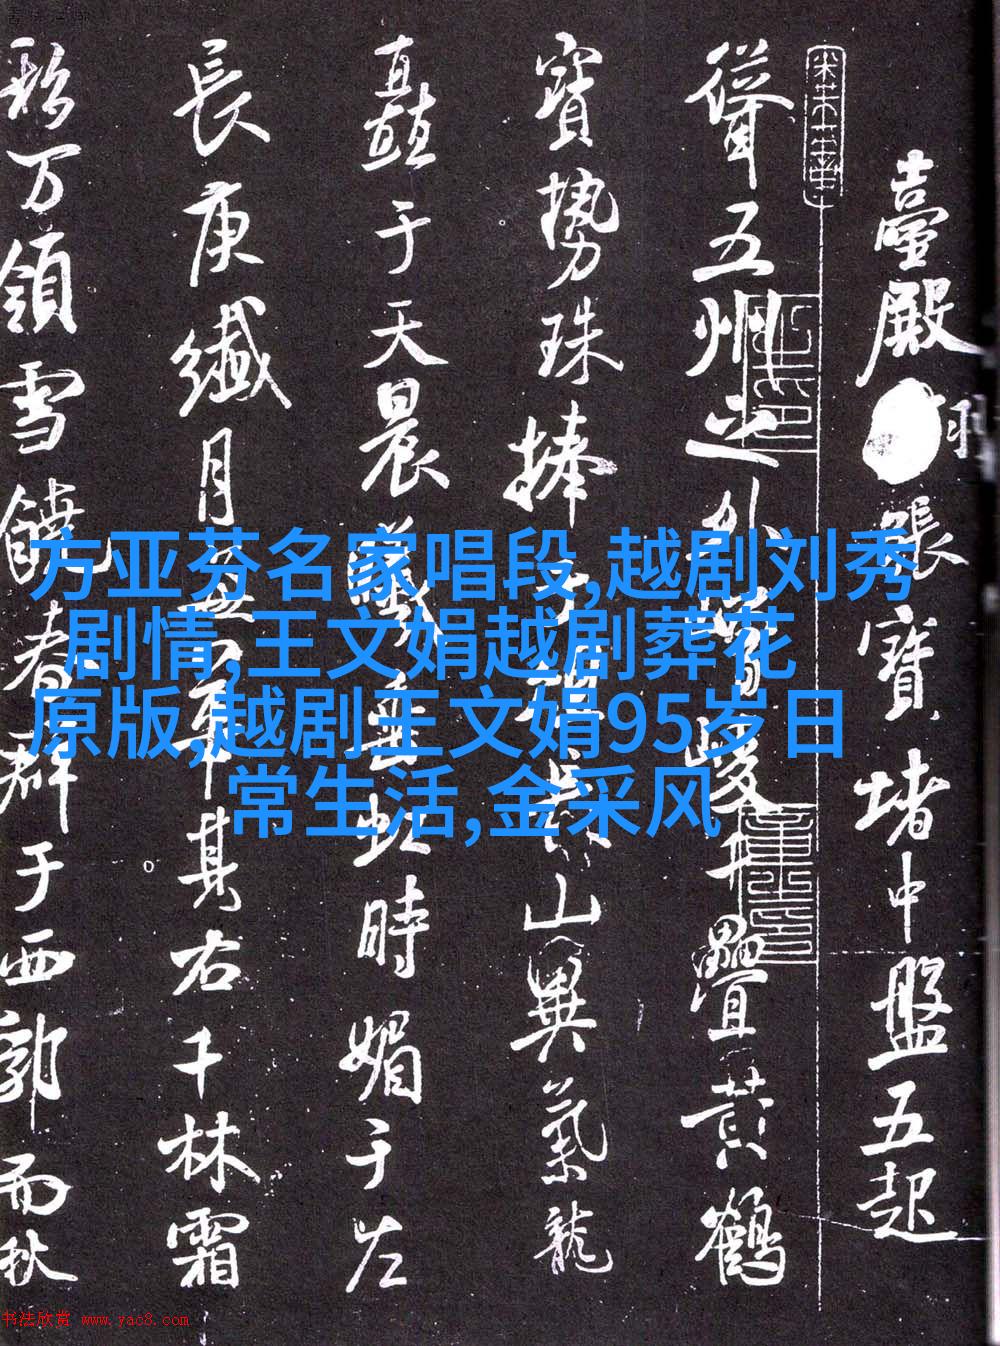 臺殿
張寶堵中盤五起
聳五州之外
疊黃鶴
寶勢珠捧
山異氣龍
矗于天晨
虹時媚于左
長庚纖月
其右千林霜
彩万領雪饒春群于西郭而秋
方亚芬名家唱段,越剧刘秀
剧情,王文娟越剧葬花
原版,越剧王文娟95岁日
常生活,金采风
书法欣赏 www.yac8.com